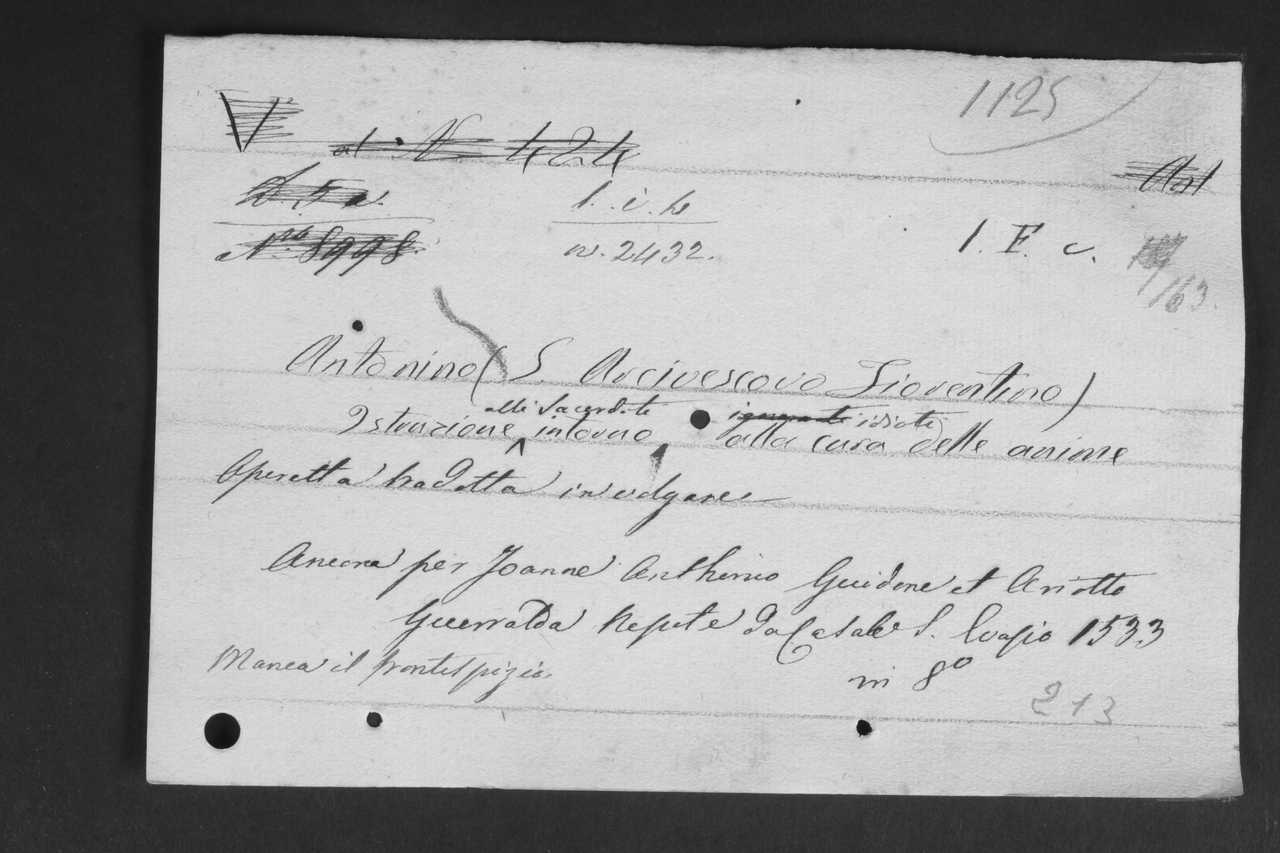 1125
V
al N 424
Ant
N.ro 8998.
1. i. b
n. 2432.
1. F. c.
163.
Antonino (S. Arcivescovo Fiorentino)
Istruzione alli Sacerdoti intorno ignoranti idioti alla cura delle anime
Operetta tradotta in volgare
Ancona per Joanne Anthonio Guidone et Ariotto
Guerralda Nepote da Casale S. Evasio 1533
Manca il frontespizio.
in 8º
213